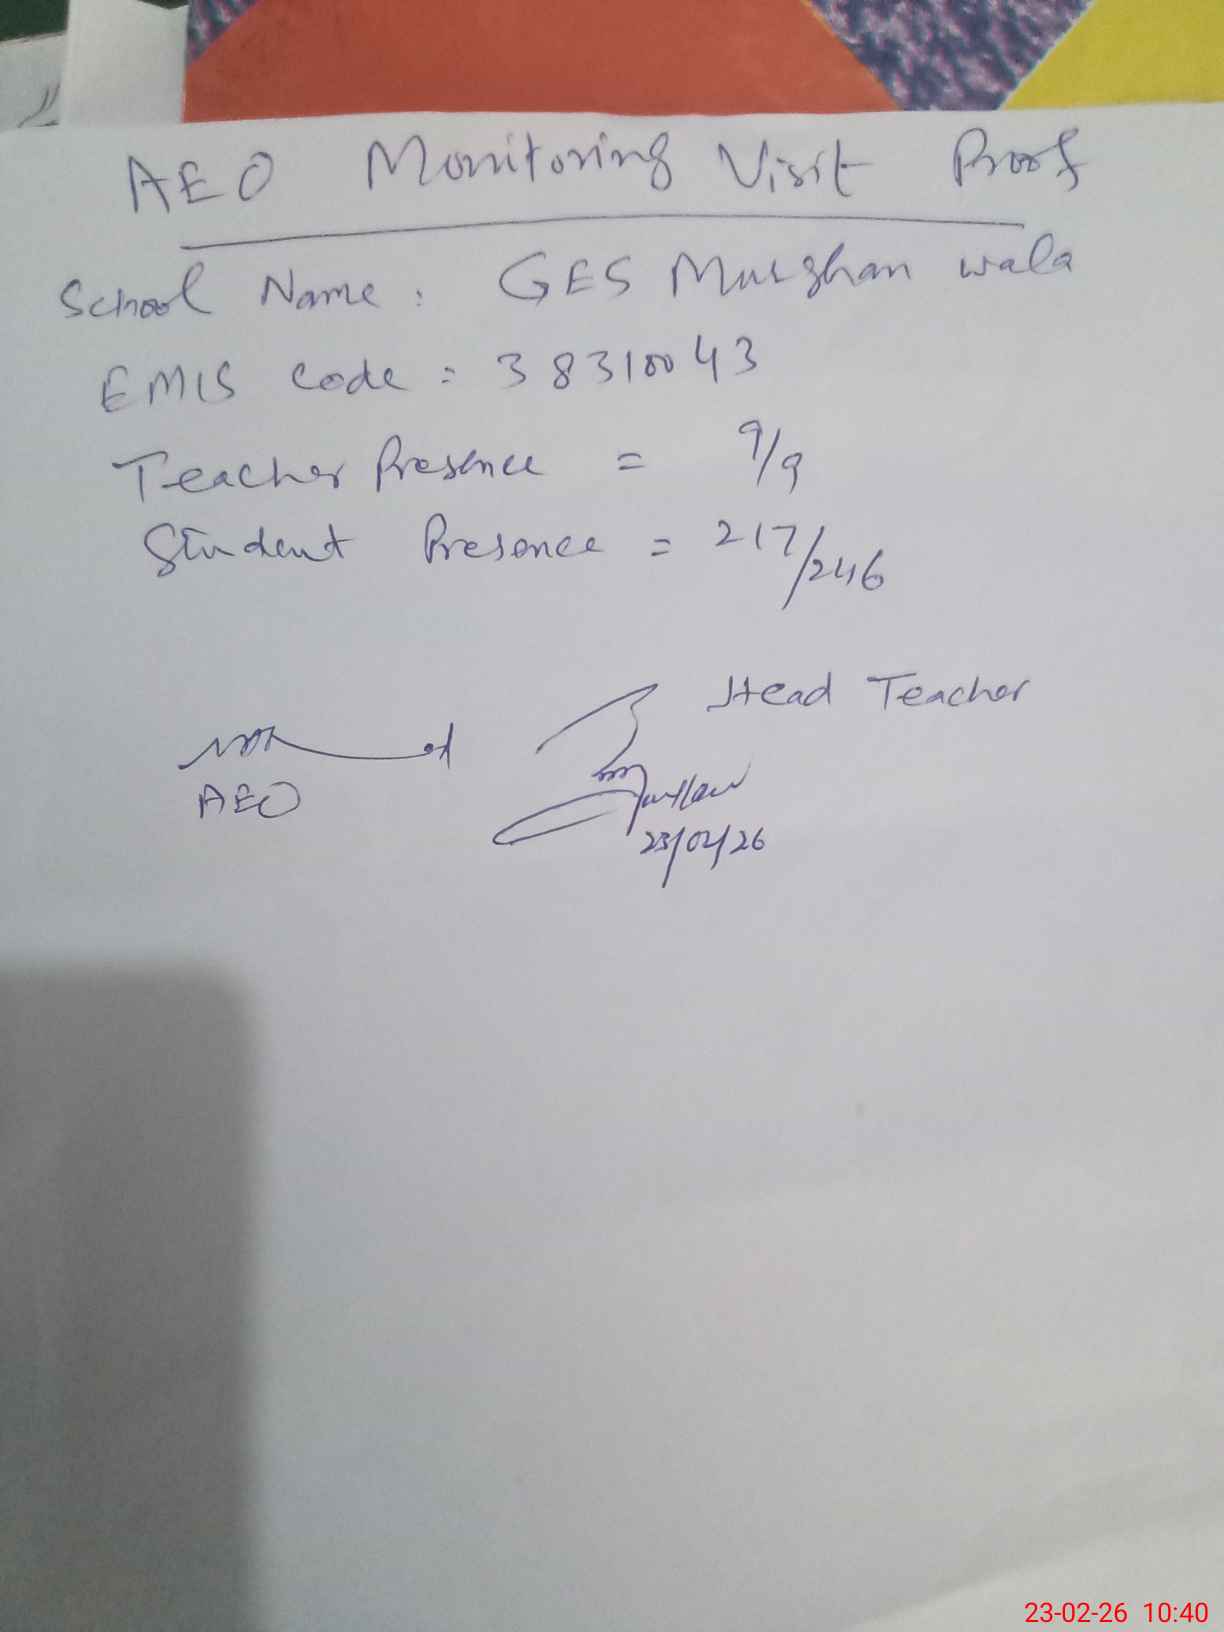 AEO Monitoring Visit Proof
School Name : GES Murghan wala
EMIS Code = 38310043
Teacher Presence = 9/9
Student Presence = 217/246
Head Teacher
AEO
23/02/26
23-02-26 10:40